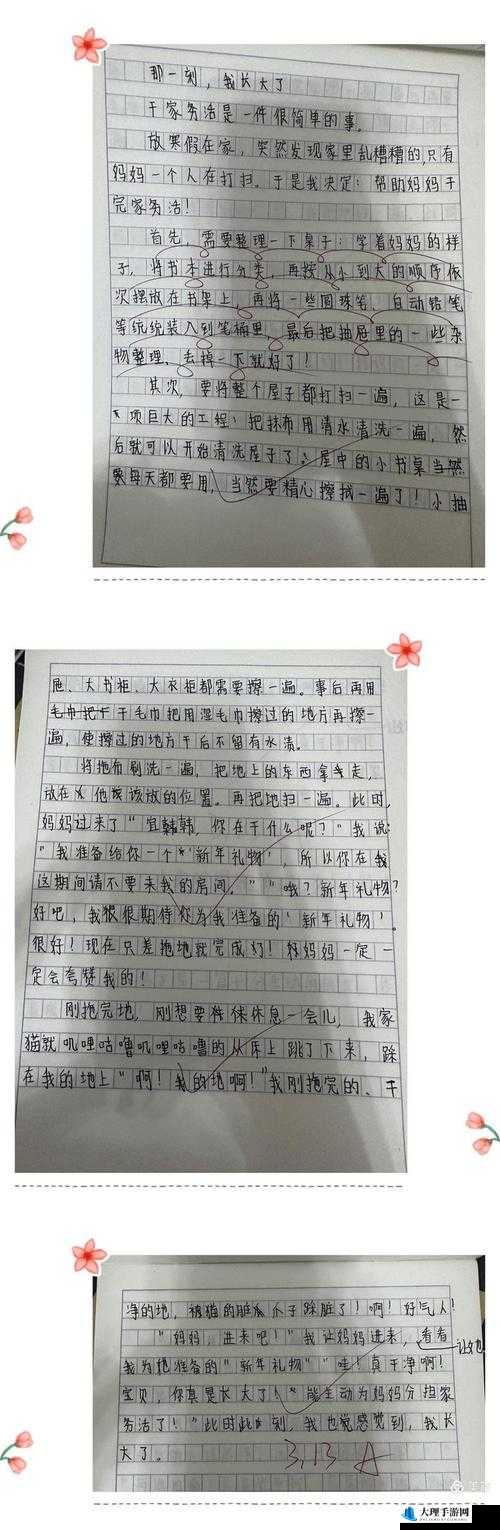 那一刻，我长大了
干家务活是一件很简单的事。
放寒假在家，突然发现家里乱糟糟的，只有
妈妈一个人在打扫。于是我决定：帮助妈妈干
完家务活！
首先，需要整理一下桌子：学着妈妈的样
子，将书本进行分类，再按从小到大的顺序依
次摆放在书架上，再将一些圆珠笔、自动铅笔
等统统装入到笔桶里，最后把抽屉里的一些杂
物整理、去掉一下就好了！
其次，要将整个屋子都打扫一遍，这是一
项巨大的工程，把抹布用清水清洗一遍，然
后就可以开始清洗屋子了，屋中的小书桌当然
每天都要用，当然要精心擦拭一遍了！小抽
屉、大书柜、大衣柜都需要擦一遍。事后再用
干毛巾把用湿毛巾擦过的地方再擦一
遍，使擦过的地方干后不留有水渍。
将拖布刷洗一遍，把地上的东西拿走，
放在他该放的位置。再把地扫一遍。此时，
妈妈过来了"宜韩韩，你在干什么呢？"我说：
"我准备给你一个'新年礼物'，所以你在我
这期间请不要来我的房间。""哦？新年礼物？
好吧，我很期待你为我准备的'新年礼物'。
很好！现在只差拖地就完成了！妈妈一定一
定会夸赞我的！
刚拖完地，刚想要休息一会儿，我家
猫就叽哩咕噜叽哩咕噜的从床上跳了下来，踩
在我的地上"啊！我的地啊！"我刚拖完的、干
净的地，被猫的脏爪子踩脏了！啊！好气人！
"妈妈，进来吧！"我让妈妈进来，看看
让她
我为她准备的"新年礼物""哇！真干净啊！
宝贝，你真是长大了！"能主动为妈妈分担家
务活了！"此时此刻，我也感觉到，我长
大了。
3.13 A
大理手游网